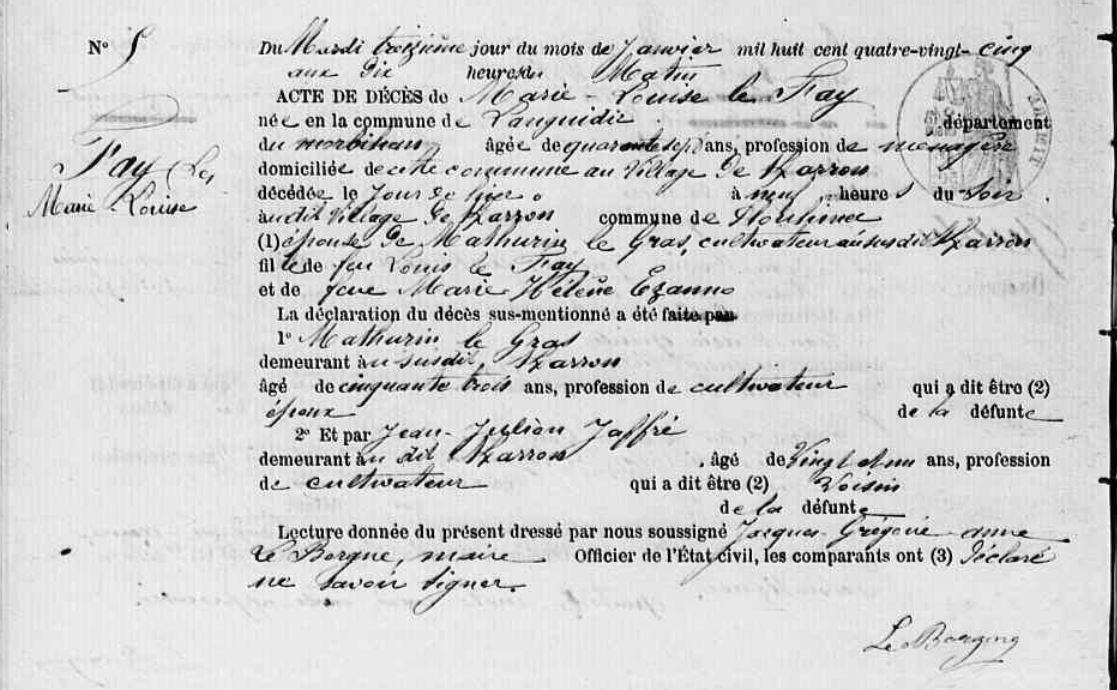 N° 5
Du Mardi treizième jour du mois de Janvier mil huit cent quatre-vingt-cinq
aux dix heures du Matin
ACTE DE DÉCÈS de Marie-Louise le Fay
née en la commune de Languidic département
du morbihan âgée de quarante sept ans, profession de ménagère
Fay Le
Marie-Louise
domiciliée de cette commune au Village de
décédée le Jour de hier à neuf heures du Soir
audit Village de commune de
(1) épouse de Mathurin le Gras, cultivateur au susdit
fille de feu Louis le Fay
et de feue Marie Hélène Ezanno
La déclaration du décès sus-mentionné a été faite par
1° Mathurin le Gras
demeurant au susdit
âgé de cinquante trois ans, profession de cultivateur qui a dit être (2)
époux de la défunte
2° Et par Jean-Julien Jaffré
demeurant au dit
âgé de Vingt ans, profession
de cultivateur qui a dit être (2) Voisin
de la défunte
Lecture donnée du présent dressé par nous soussigné Jacques-Grégoire-anne
Le Borgne, maire Officier de l'État civil, les comparants ont (3) Déclaré
ne savoir signer.
Le Borgne